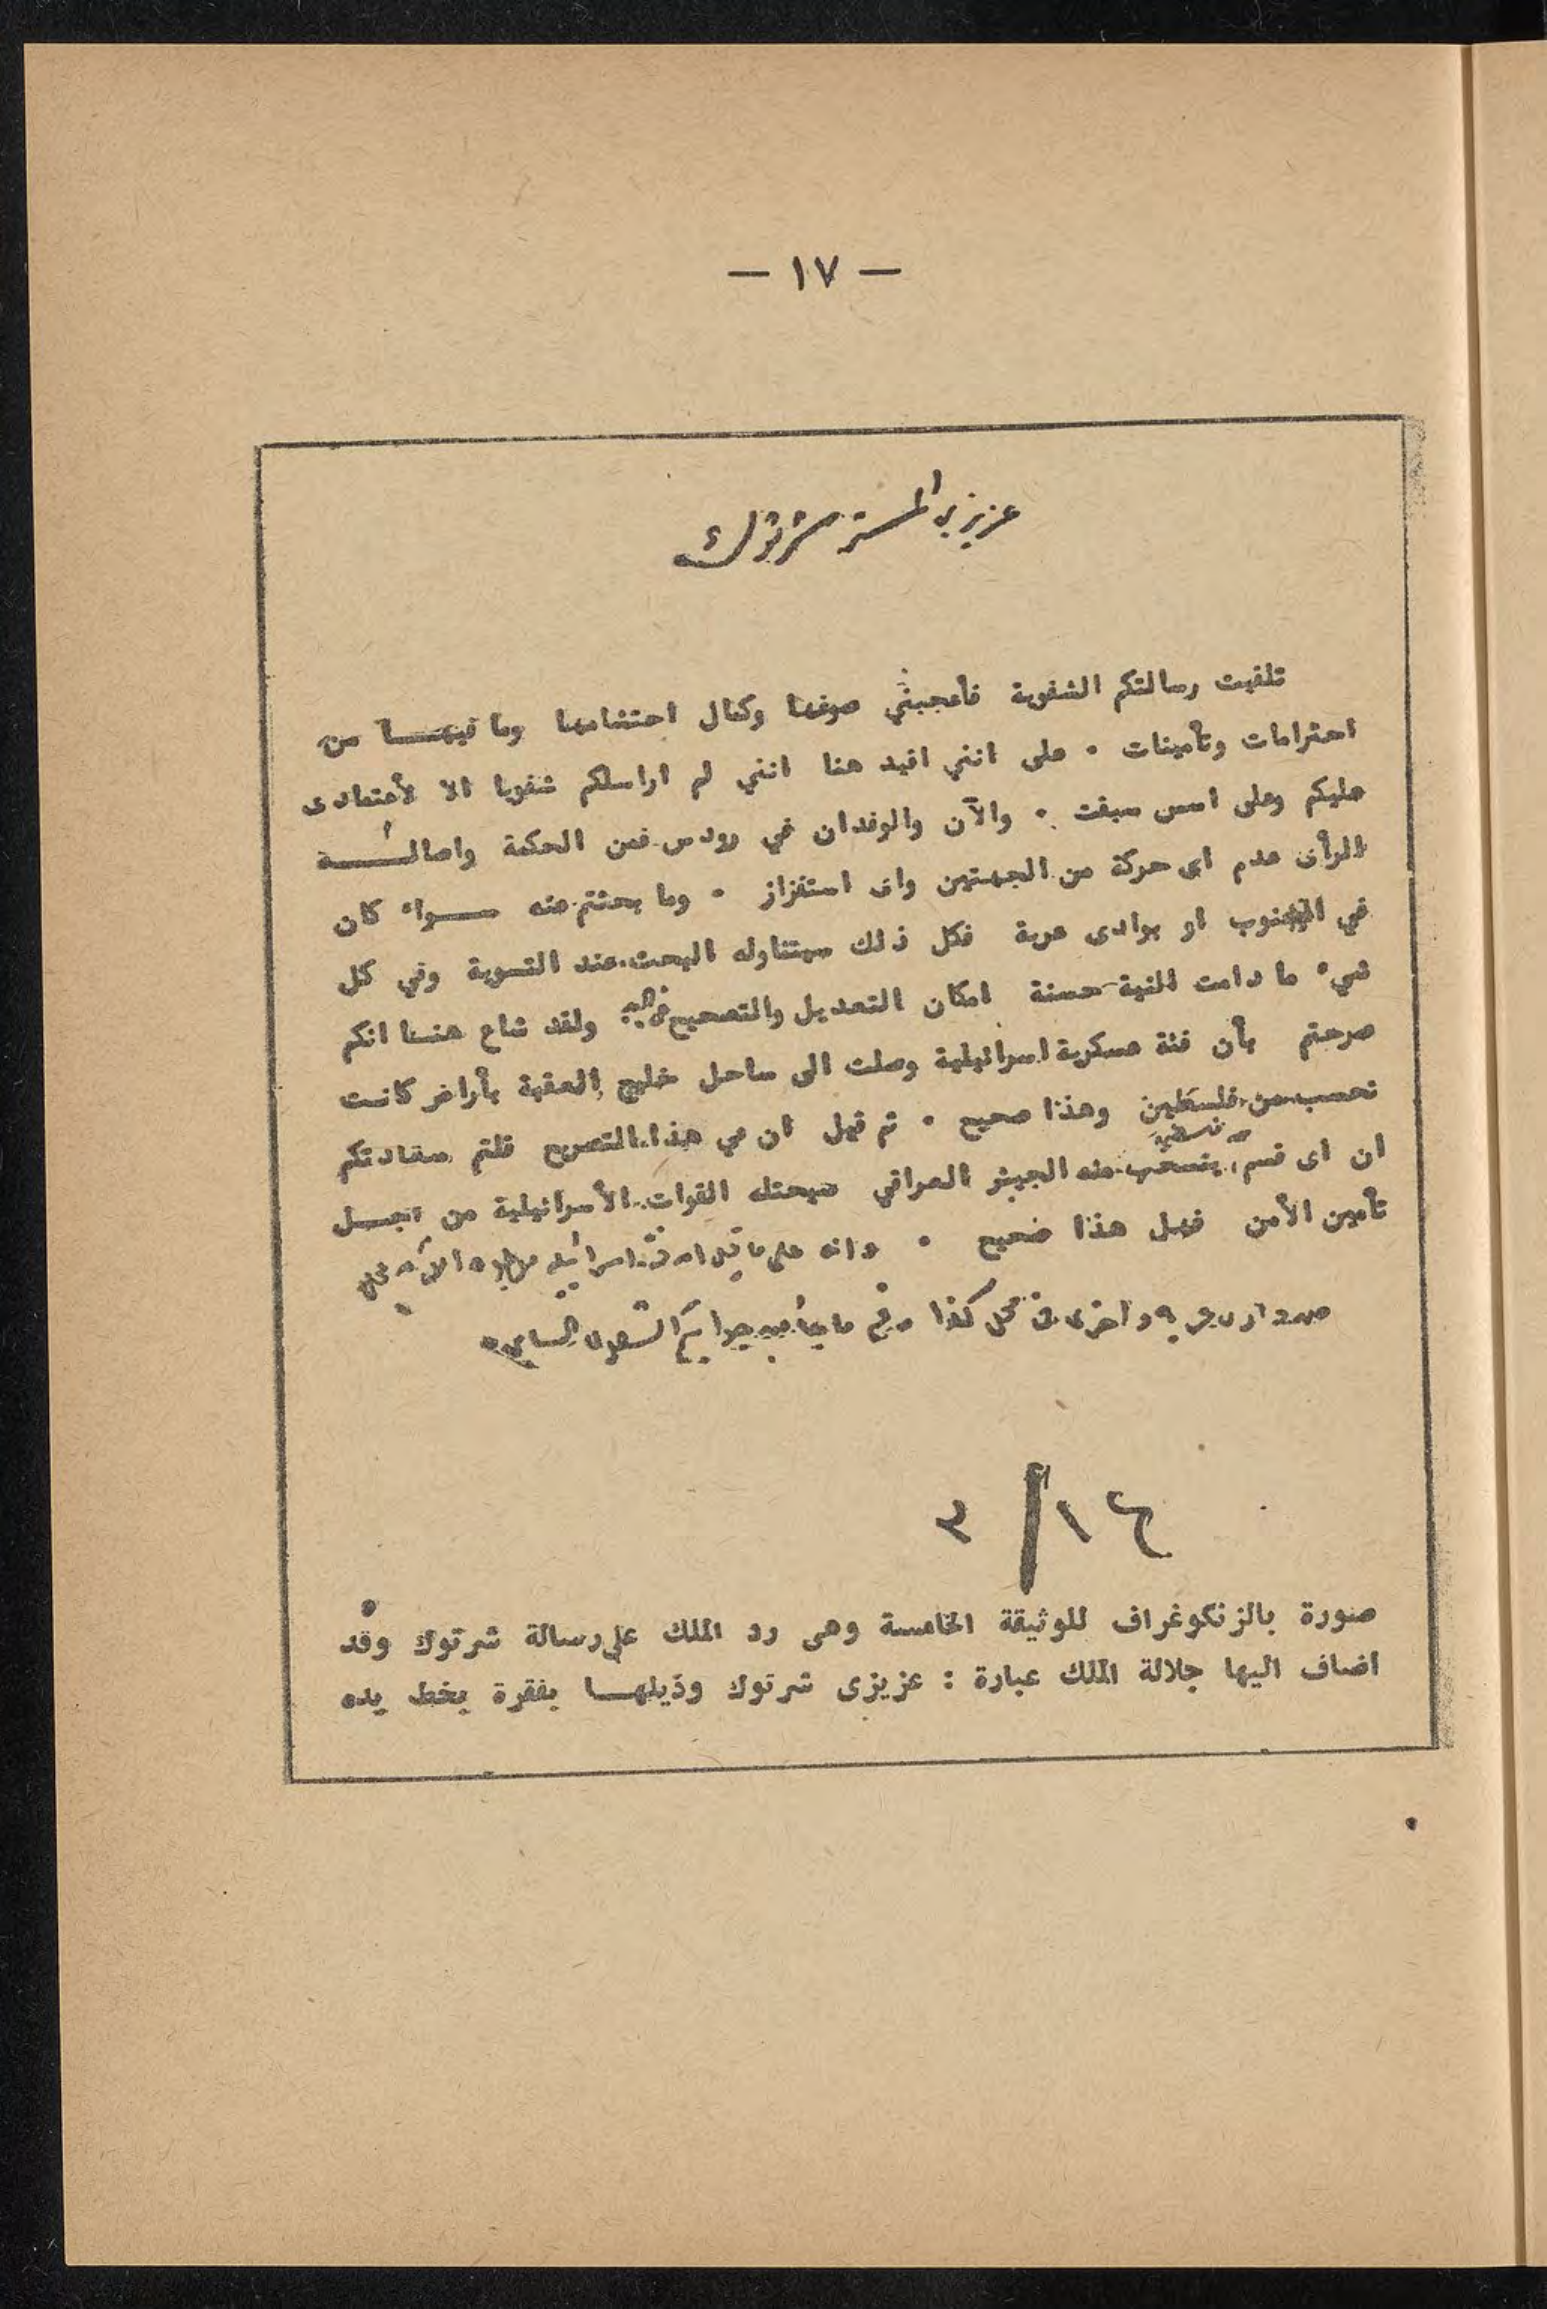 — ١٧ —
عزيزي المستر شرتوك
تلقيت رسالتكم الشفوية فأعجبني صوغها وكمال احتشامها وما فيهـــا من
احترامات وتأمينات . على انني افيد هنا انني لم اراسلكم شفويا الا لأعتمادى
عليكم وعلى اسس سبقت . والآن والوفدان في رودس فمن الحكمة واصالـــة
الرأى عدم اى حركة من الجهتين واى استفزاز . وما بحثتم عنه ســواء كان
في الجنوب او بوادى عربة فكل ذلك سيتناوله البحث عند التسوية وفي كل
شيء ما دامت النية حسنة امكان التعديل والتصحيح ولقد شاع هنــا انكم
صرحتم بأن فئة عسكرية اسرائيلية وصلت الى ساحل خليج العقبة بأراض كانت
تحسب من فلسطين وهذا صحيح . ثم قيل ان في هذا التصريح قلتم سعادتكم
ان اى قسم من فلسطين ينسحب منه الجيش العراقي سيحتله القوات الأسرائيلية من اجــل
تأمين الأمن فهل هذا صحيح . وانه على ما قيل ان اسرائيليه الآن في
واخرى في محل كهذا
١٦ / ٣
صورة بالزنكوغراف للوثيقة الخامسة وهى رد الملك على رسالة شرتوك وقد
اضاف اليها جلالة الملك عبارة : عزيزى شرتوك وذيلهــا بفقرة بخط يده